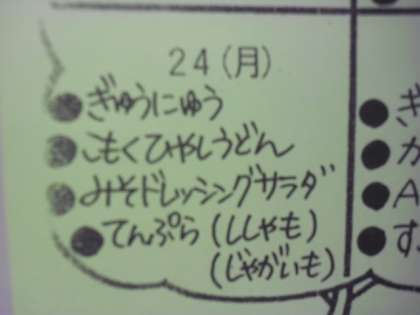 24(月)
●ぎゅうにゅう
●こもくひやしうどん
●みそドレッシングサラダ
●てんぷら(ししゃも)
(じゃがいも)
●ぎ
●カ
●A
●す